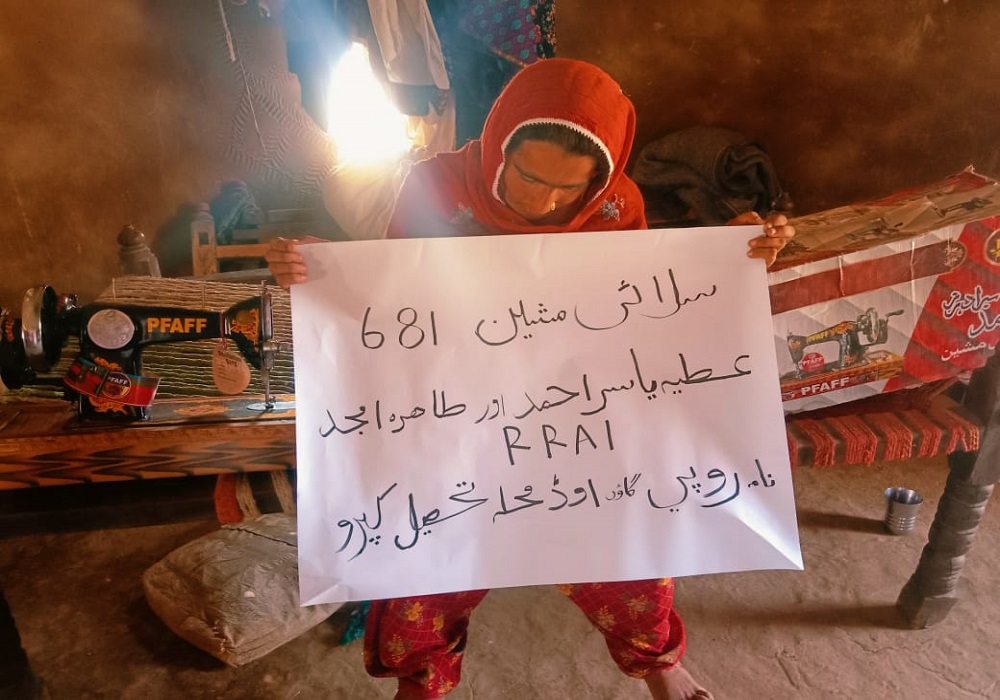 سلائی مشین 681
عطیہ یاسر احمد اور طاہرہ امجد
RRAI
نام روپی گاؤں اوڈ محلہ تحصیل کپرو
PFAFF
PFAFF
PFAFF